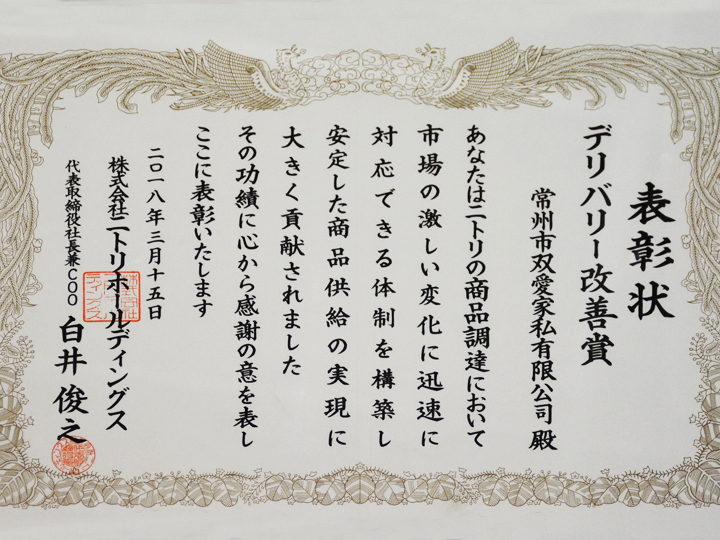 表彰状
デリバリー改善賞
常州市双愛家私有限公司 殿
あなたはニトリの商品調達において
市場の激しい変化に迅速に
対応できる体制を構築し
安定した商品供給の実現に
大きく貢献されました
その功績に心から感謝の意を表し
ここに表彰いたします
二〇一八年三月十五日
株式会社ニトリホールディングス
代表取締役社長兼COO 白井俊之